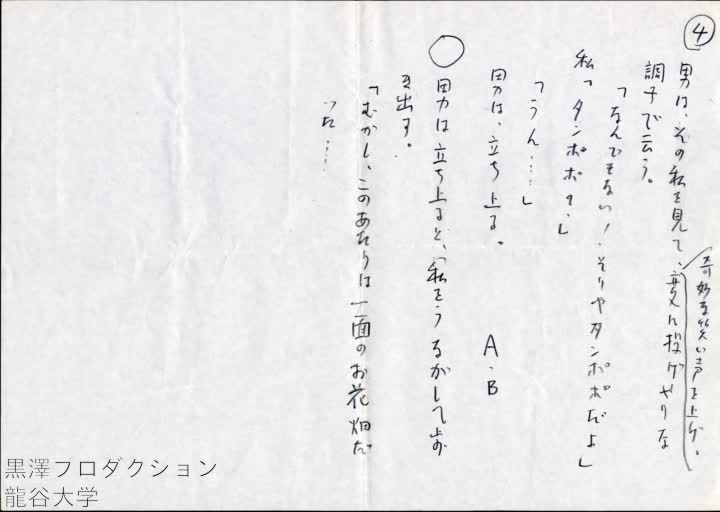 ④
男は、その私を見て、変に投げやりな
奇妙な笑い声を上げ、
調子で云う。
「なんでもない!そりやタンポポだよ」
私「タンポポ?」
「うん……」
男は、立ち上る。
A・B
○
男は立ち上ると、私をうながして歩
き出す。
「むかし、このあたりは一面のお花畑だ
った……
黒澤プロダクション
龍谷大学